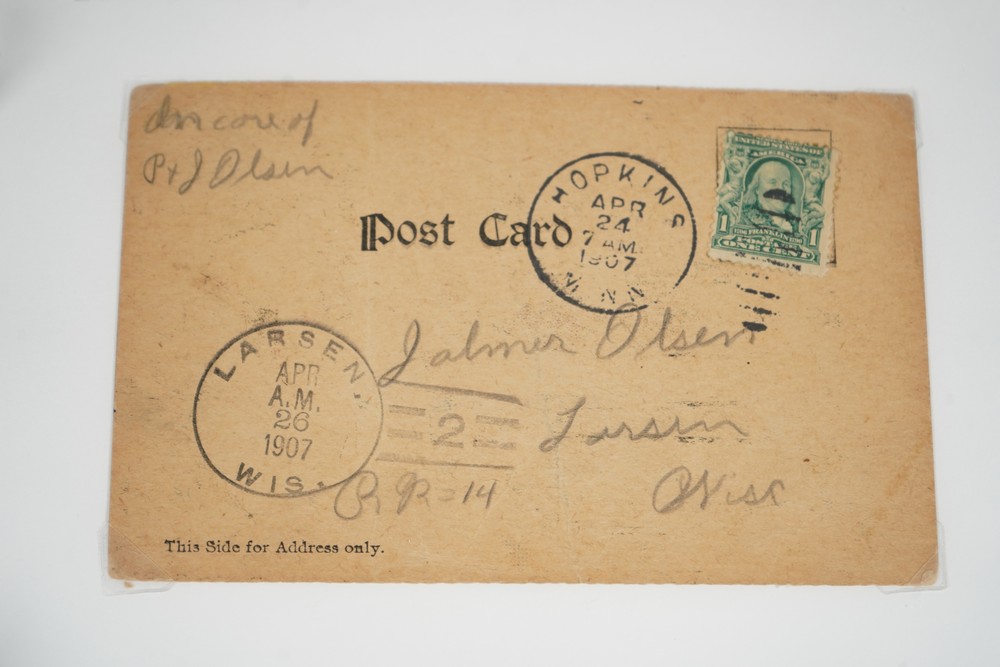 In care of
P + J Olsen
Post Card
HOPKINS
APR
24
7 AM
1907
MINN
UNITED STATES OF
AMERICA
1 FRANKLIN 1
POSTAGE
ONE CENT
Jalmer Olsen
LARSEN,
APR
A.M.
26
1907
WIS.
2
Larsen
R R 14
Wisc
This Side for Address only.